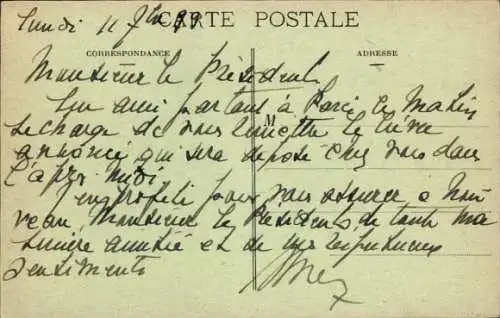 Lundi 11 7bre 39
CARTE POSTALE
CORRESPONDANCE
ADRESSE
M
Monsieur le Président
Un ami partant à Paris ce Matin
se charge de vous remettre le livre
annoncé qui sera déposé chez vous dans
l'après midi
J'en profite pour vous assurer à nou
veau, Monsieur le Président, de toute ma
sincère amitié et de mes respectueux
sentiments